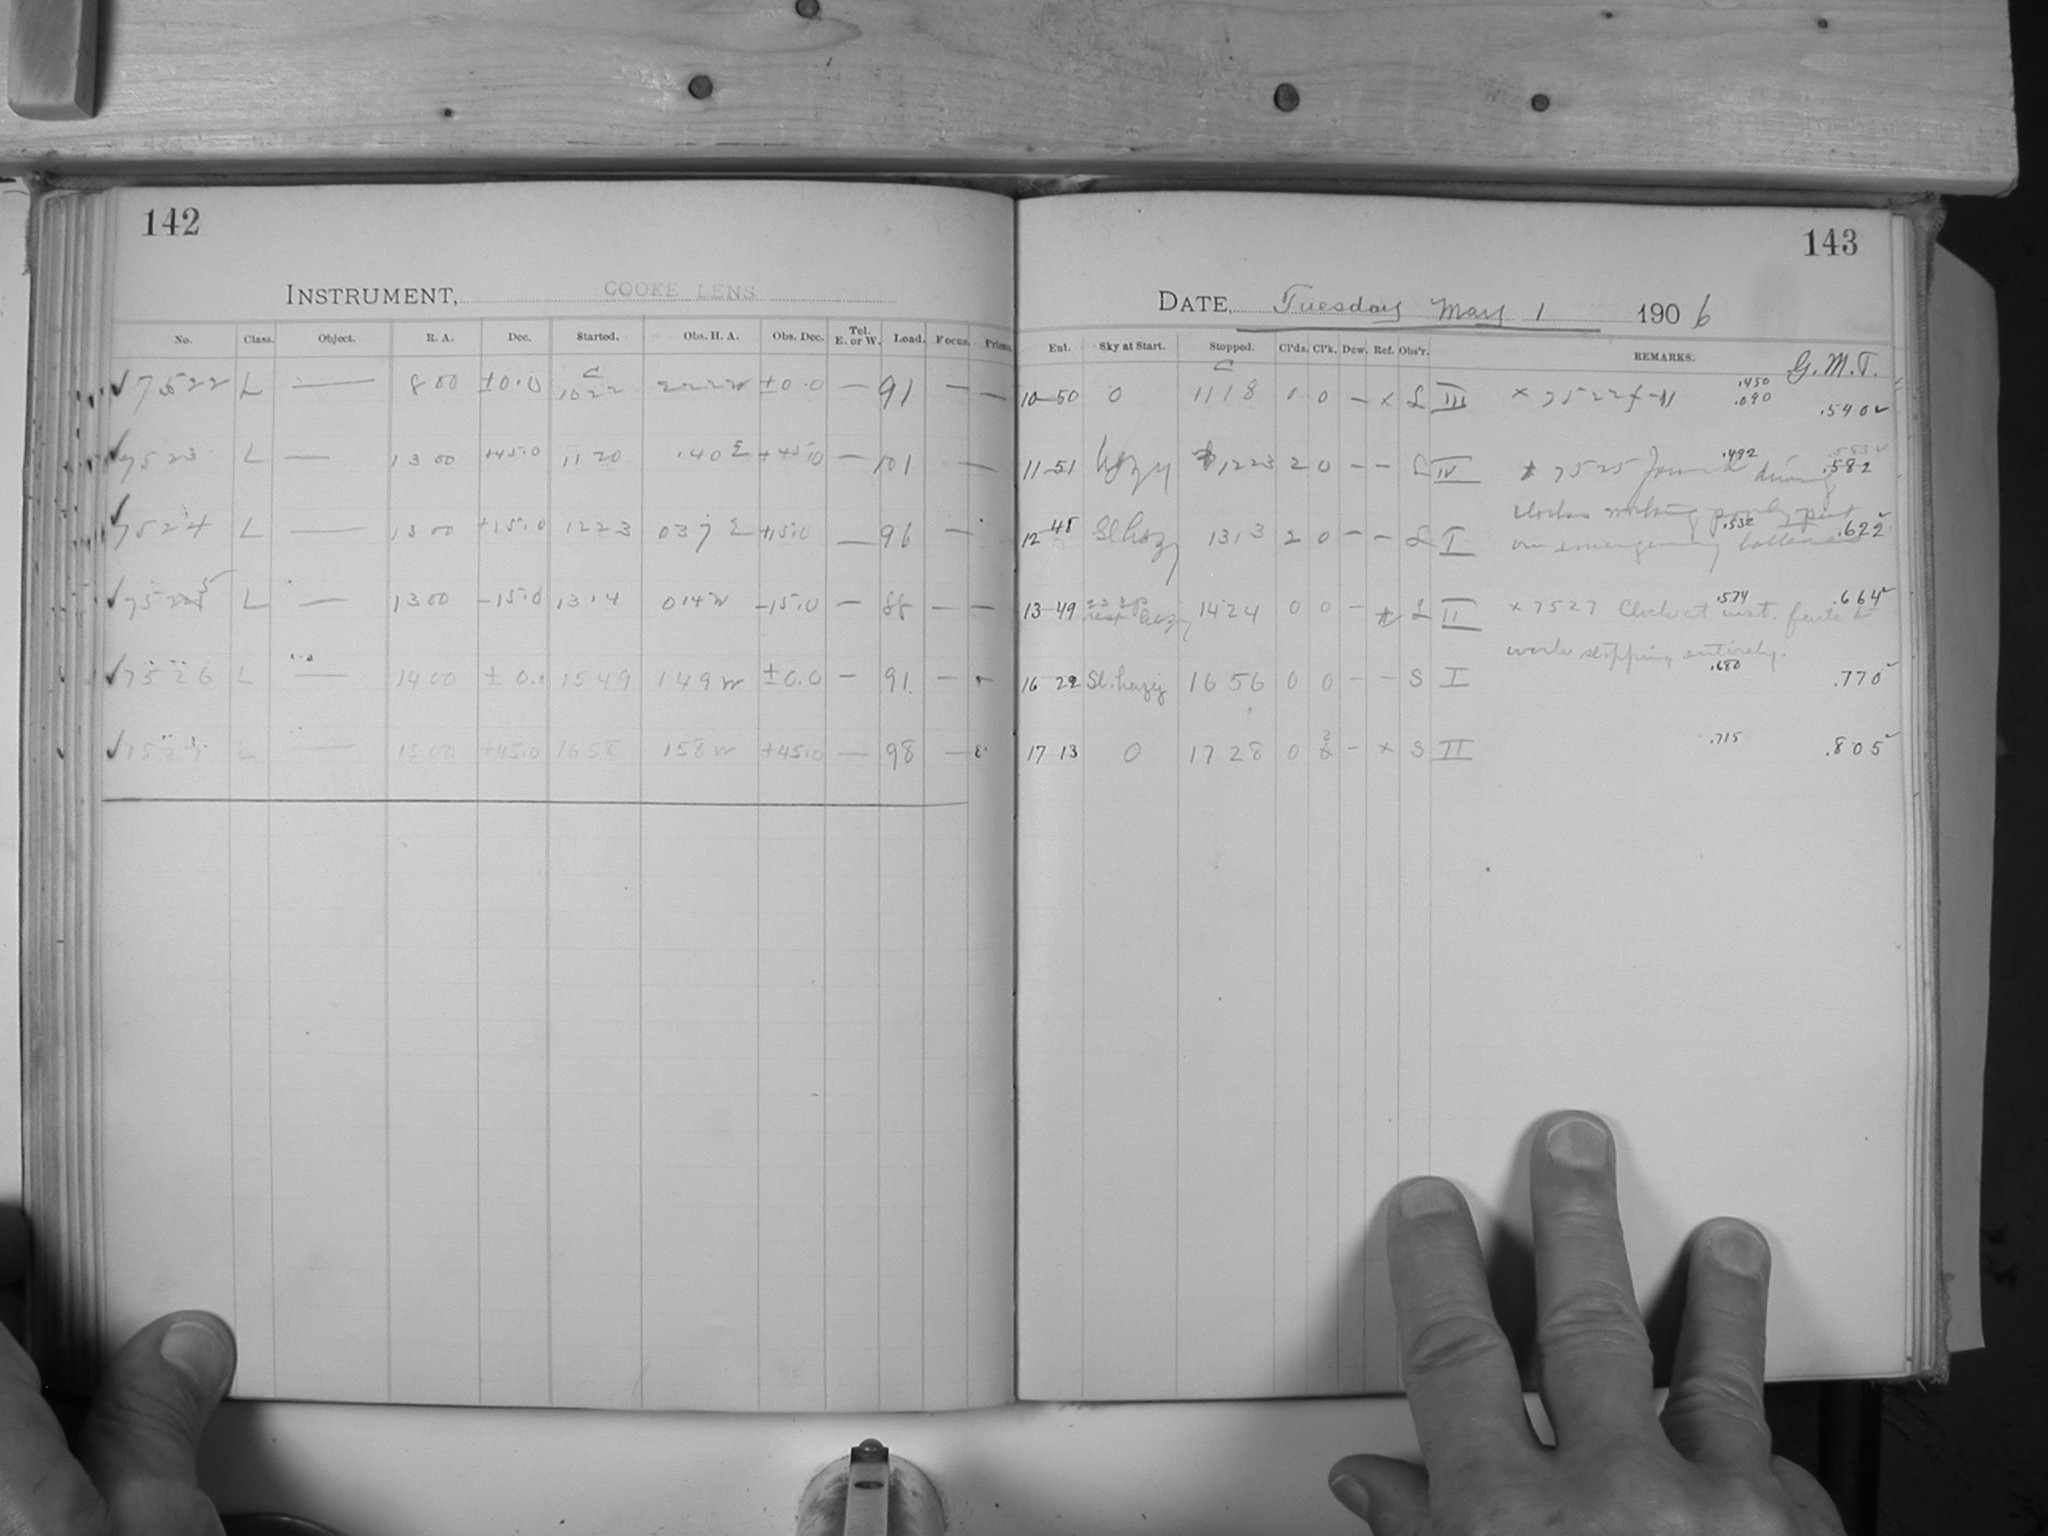 142
INSTRUMENT, COOKE LENS
No. Class. Object. R. A. Dec. Started. Obs. H. A. Obs. Dec. Tel. E. or W. Load. Focus. Prisms.
7522 L — 8 00 ±0.0 C 1022 222 W ±0.0 — 91 — —
7523 L — 13 00 +45.0 11 20 1 40 E +45.0 — 101 —
7524 L — 13 00 +15.0 1223 037 E +15.0 — 96 —
7525 L — 13 00 -15.0 13 14 014 W -15.0 — 88 — —
7526 L — 14 00 ±0.0 1549 149 W ±0.0 — 91 — —
L — 15 00 +45.0 1658 158 W +45.0 — 98 —
143
DATE, Tuesday May 1 1906
Ent. Sky at Start. Stopped. Cl'ds. Cl'k. Dew. Ref. Obs'r. REMARKS. G. M. T.
10-50 0 C 1118 0 0 — x L III x 7522 .450 .090 .540
11-51 Hazy 1223 2 0 — — L IV x 7525 .492 .582
clocks working poorly
12-48 Sl hazy 1313 2 0 — — L I on emergency batteries .532 .622
13-49 hazy 1424 0 0 — x L II x 7527 Clock at inst. fails to .574 .664
work stopping entirely.
16 22 Sl. hazy 1656 0 0 — — S I .680 .770
17 13 0 1728 0 2 — x S II .715 .805